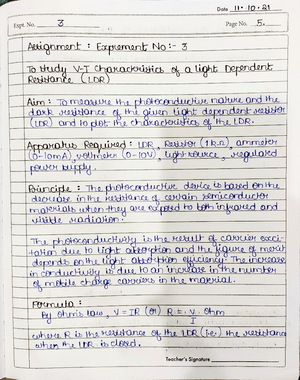 Date 11-10-21
Expt. No. 3
Page No. 5.
Assignment : Experiment No :- 3
To study V-I Characteristics of a light Dependent
Resistance (LDR)
Aim : To measure the photoconductive nature and the
dark resistance of the given light dependent resistor
(LDR) and to plot the characteristics of the LDR.
Apparatus Required : LDR, Resistor (1kΩ), ammeter
(0-10mA), voltmeter (0-10V), light source, regulated
power supply.
Principle : The photoconductive device is based on the
decrease in the resistance of certain semiconductor
materials when they are exposed to both infrared and
visible radiation.
The photoconductivity is the result of carrier exci-
tation due to light absorption and the figure of merit
depends on the light absorption efficiency. The increase
in conductivity is due to an increase in the number
of mobile charge carriers in the material.
Formula :
By ohm's law, V = IR (or) R = V/I ohm
where R is the resistance of the LDR (i.e.) the resistance
when the LDR is closed.
Teacher's Signature